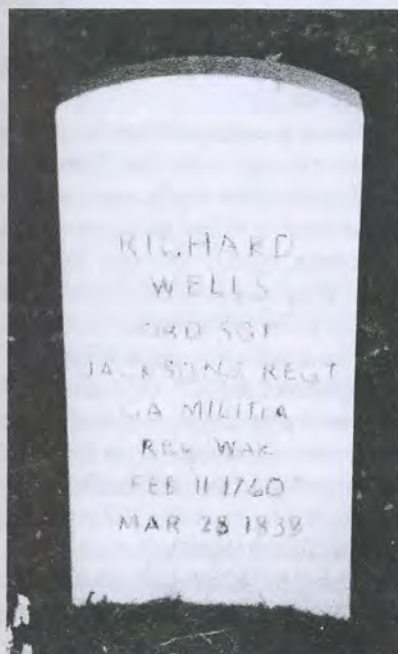 RICHARD
WELLS
ORD SGT
JACKSONS REGT
GA MILITIA
REV WAR
FEB 11 1760
MAR 28 1838